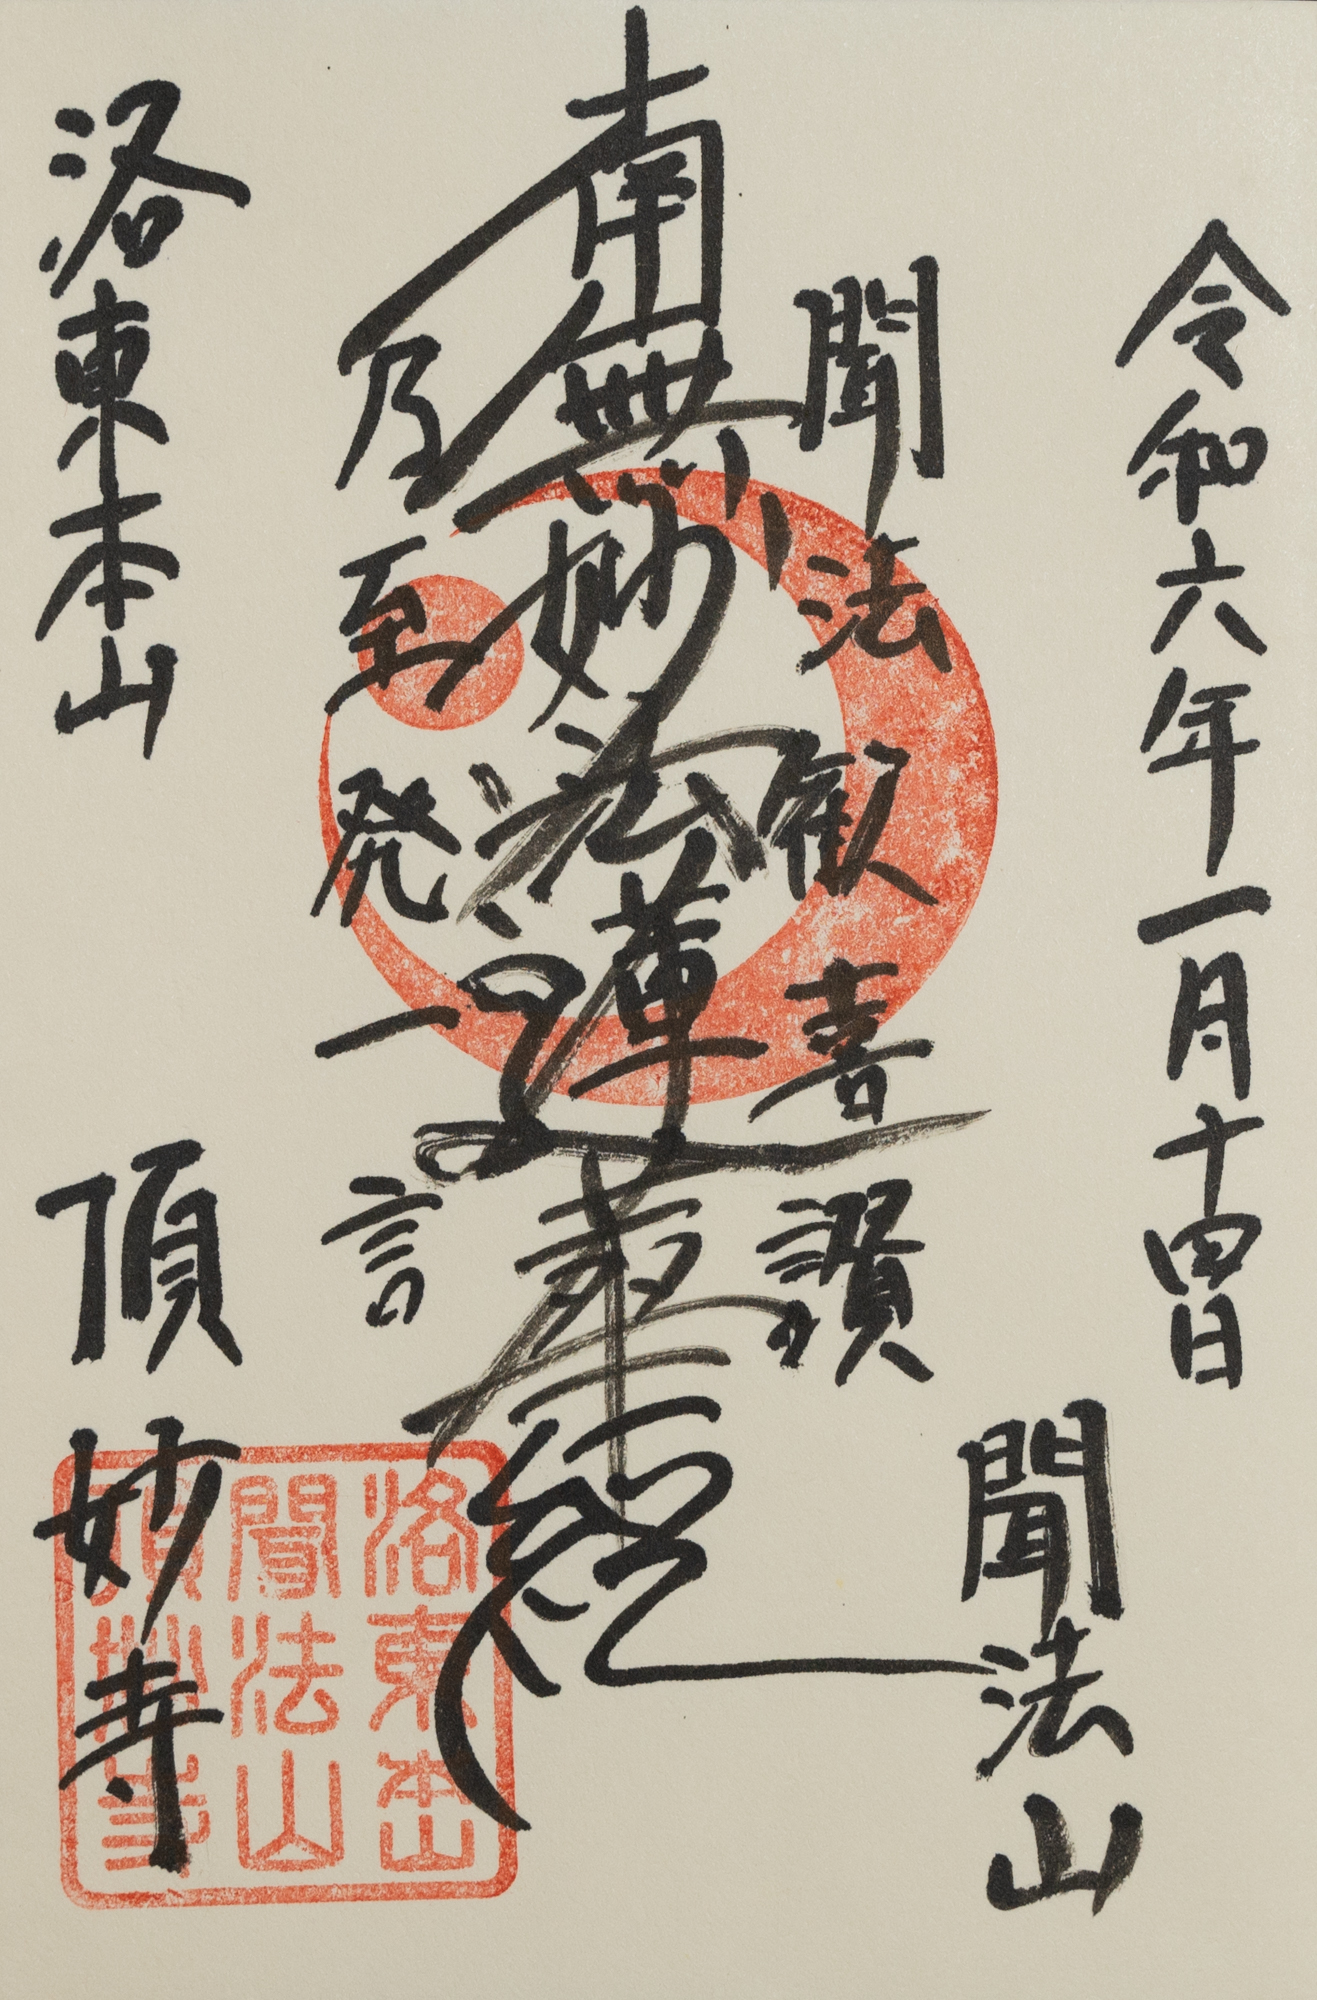 令和六年一月十四日
聞法山
聞法歓喜讃
南無妙法蓮華経
乃至発一言
洛東本山
頂妙寺
洛東本山
聞法山
頂妙寺